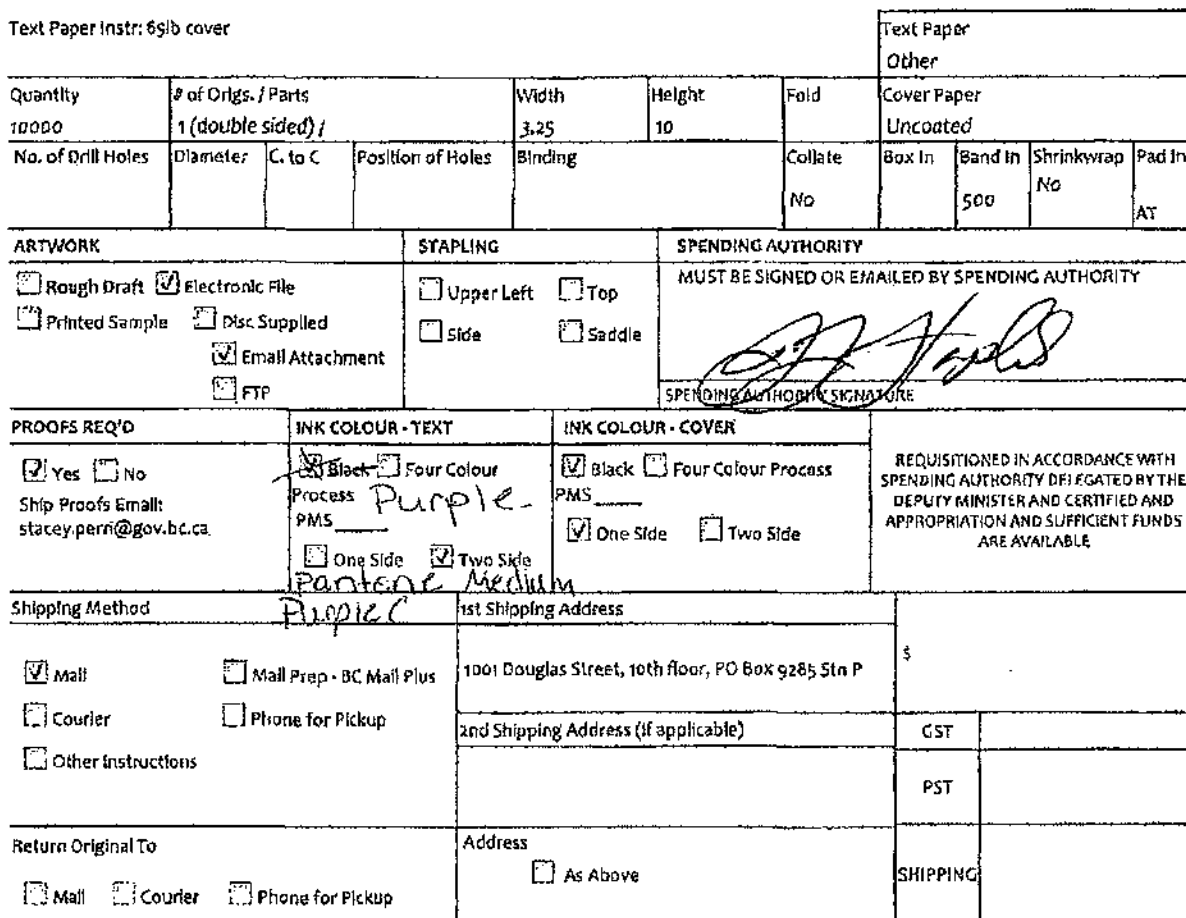 Text Paper Instr: 65lb cover
Text Paper
Other
Quantity
10000
# of Origs. / Parts
1 (double sided) /
Width
3.25
Height
10
Fold
Cover Paper
Uncoated
No. of Drill Holes
Diameter
C. to C
Position of Holes
Binding
Collate
No
Box In
Band In
500
Shrinkwrap
No
Pad In
AT
ARTWORK
Rough Draft
Electronic File
Printed Sample
Disc Supplied
Email Attachment
FTP
STAPLING
Upper Left
Top
Side
Saddle
SPENDING AUTHORITY
MUST BE SIGNED OR EMAILED BY SPENDING AUTHORITY
SPENDING AUTHORITY SIGNATURE
PROOFS REQ'D
Yes
No
Ship Proofs Email:
stacey.perri@gov.bc.ca
INK COLOUR - TEXT
Black
Four Colour
Process
Purple
PMS
One Side
Two Side
Pantone Medium
Purple C
INK COLOUR - COVER
Black
Four Colour Process
PMS
One Side
Two Side
REQUISITIONED IN ACCORDANCE WITH
SPENDING AUTHORITY DELEGATED BY THE
DEPUTY MINISTER AND CERTIFIED AND
APPROPRIATION AND SUFFICIENT FUNDS
ARE AVAILABLE
Shipping Method
Mail
Mail Prep - BC Mail Plus
Courier
Phone for Pickup
Other Instructions
1st Shipping Address
1001 Douglas Street, 10th floor, PO Box 9285 Stn P
2nd Shipping Address (if applicable)
$
GST
PST
SHIPPING
Return Original To
Mail
Courier
Phone for Pickup
Address
As Above